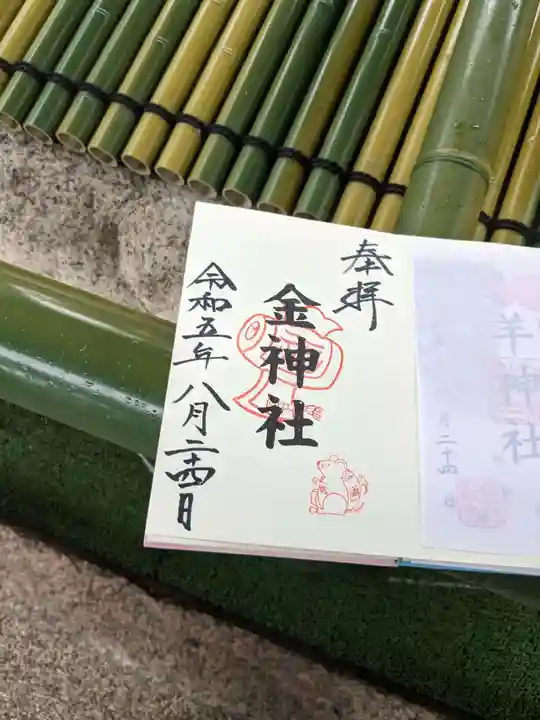 奉拝
金神社
令和五年八月二十四日
羊神社
月二十四日